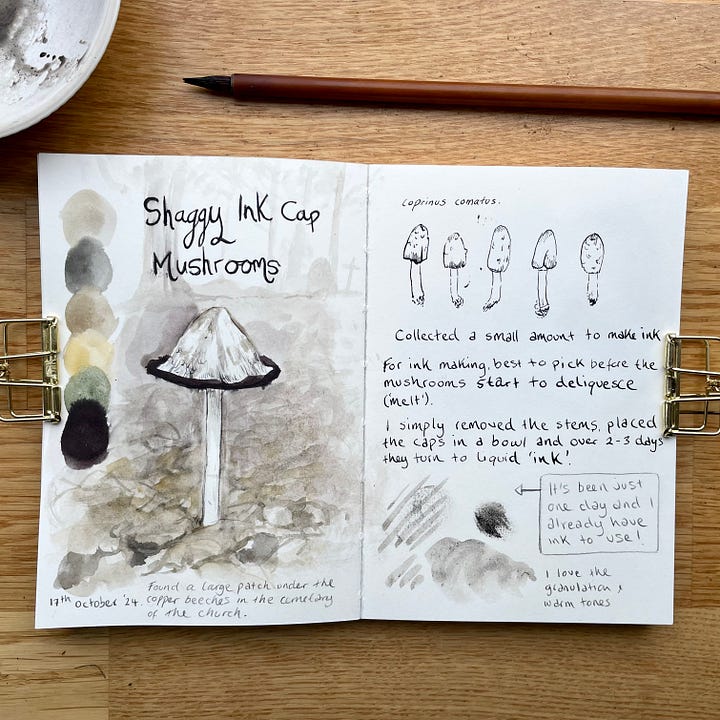 Shaggy Ink Cap
Mushrooms
17th October '24.
Found a large patch under the
copper beeches in the cemetary
of the church.
Coprinus comatus.
Collected a small amount to make ink
For ink making, best to pick before the
mushrooms start to deliquesce
('melt').
I simply removed the stems, placed
the caps in a bowl and over 2-3 days
they turn to liquid 'ink'.
It's been just
one day and I
already have
ink to use!
I love the
granulation &
warm tones